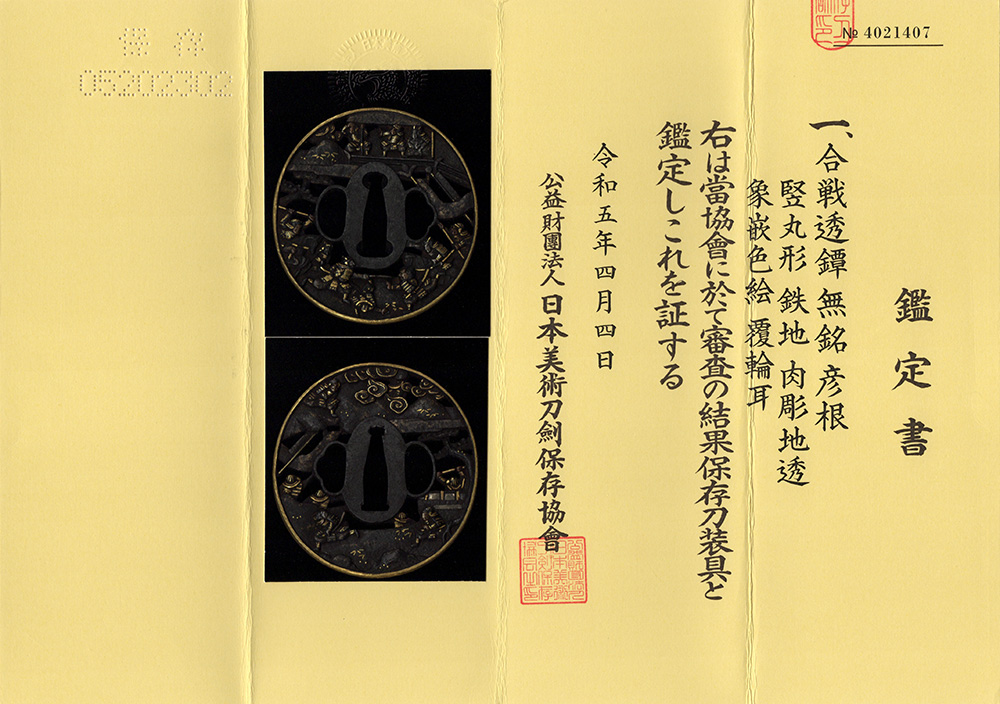 № 4021407
鑑定書
一、合戦透鐔 無銘 彦根
竪丸形 鉄地 肉彫地透
象嵌色絵 覆輪耳
右は當協會に於て審査の結果保存刀装具と
鑑定しこれを証する
令和五年四月四日
公益財團法人 日本美術刀劍保存協會
保存
05202302